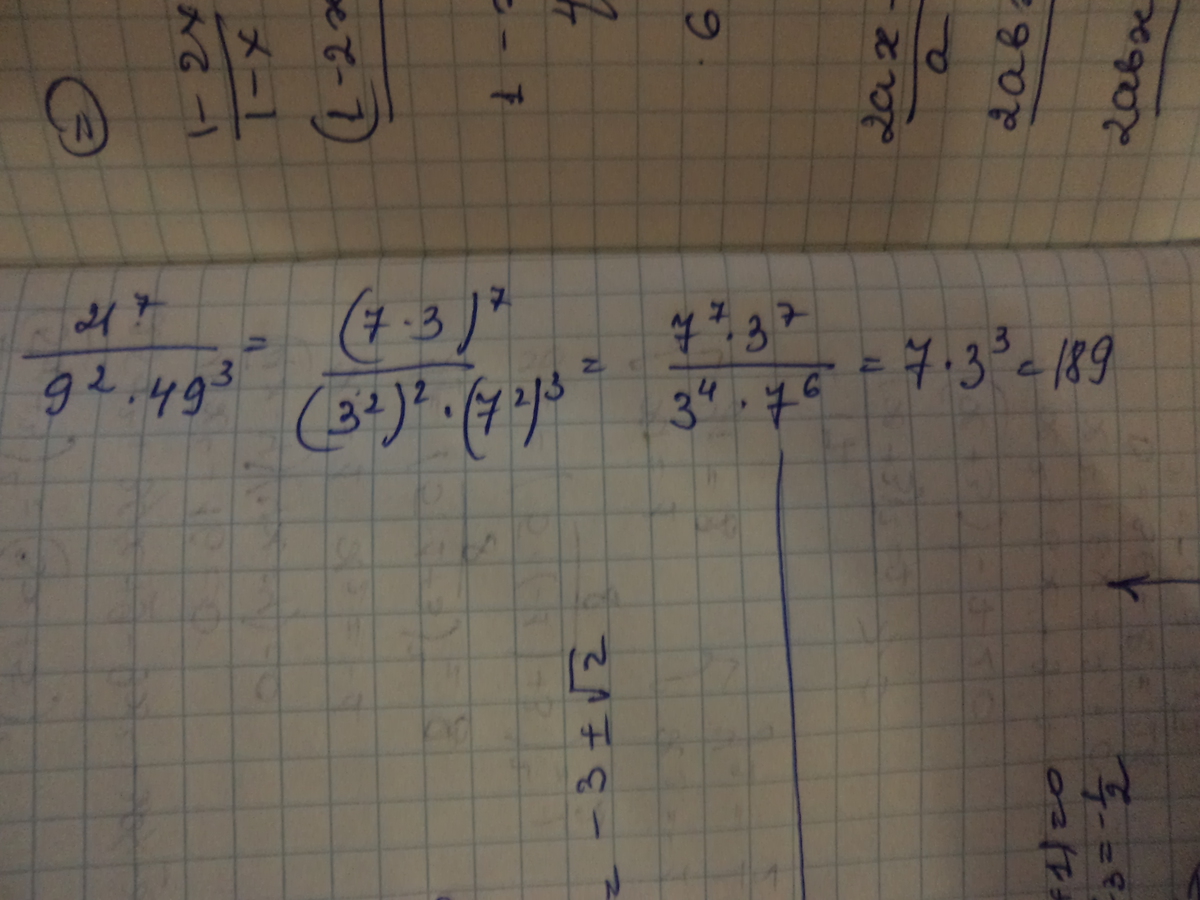 21^7 / (9^2 · 49^3) = (7 · 3)^7 / ((3^2)^2 · (7^2)^3) = (7^7 · 3^7) / (3^4 · 7^6) = 7 · 3^3 = 189
-3 ± √2
+1) = 0
3 = -1/2
=
1 - 2x
1 - x
(1 - 2x
1 -
6
2ax -
a
2ab
2abx